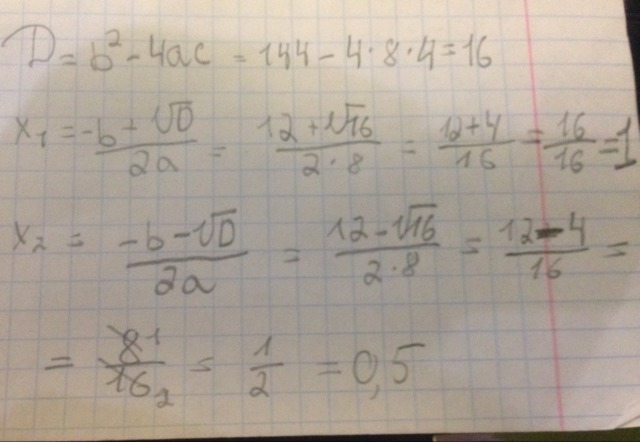 D = b² - 4ac = 144 - 4·8·4 = 16
x₁ = (-b + √D)/(2a) = (12 + √16)/(2·8) = (12 + 4)/16 = 16/16 = 1
x₂ = (-b - √D)/(2a) = (12 - √16)/(2·8) = (12 - 4)/16 =
= 8 1/16 2 = 1/2 = 0,5